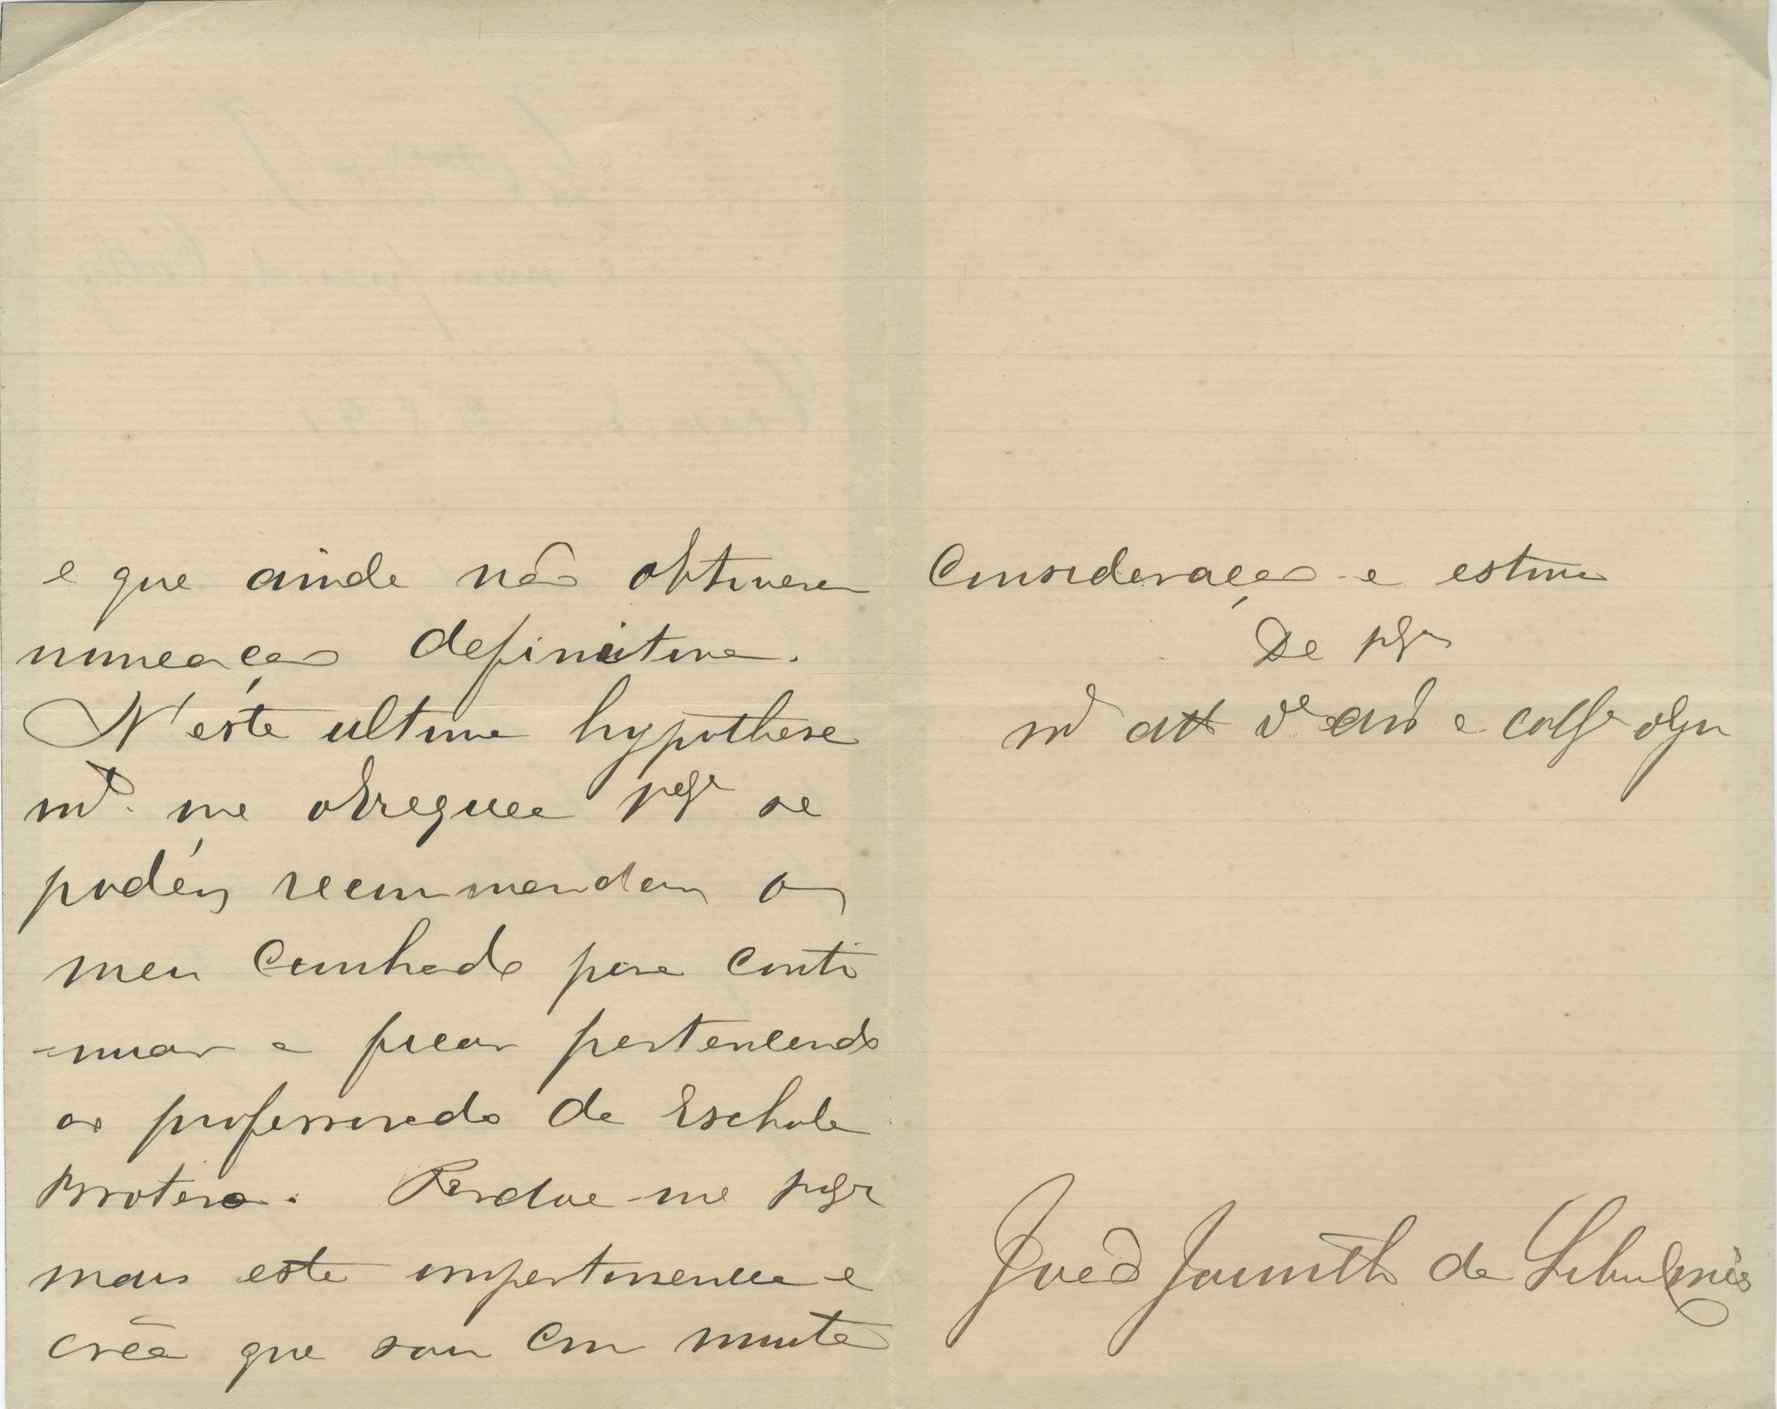 e que ainda não obtiveram
nomeação definitiva.
N'esta ultima hypothese
mto. me obsequea se
podér recommendar o
meu cunhado para conti
-nuar a ficar pertencendo
ao professorado da Eschola
Brotero. Perdoe-me
mais esta impertinencia e
crêa que sou com muita
Consideração e estima
De
mto att e obgo
João Jacintho da Silva